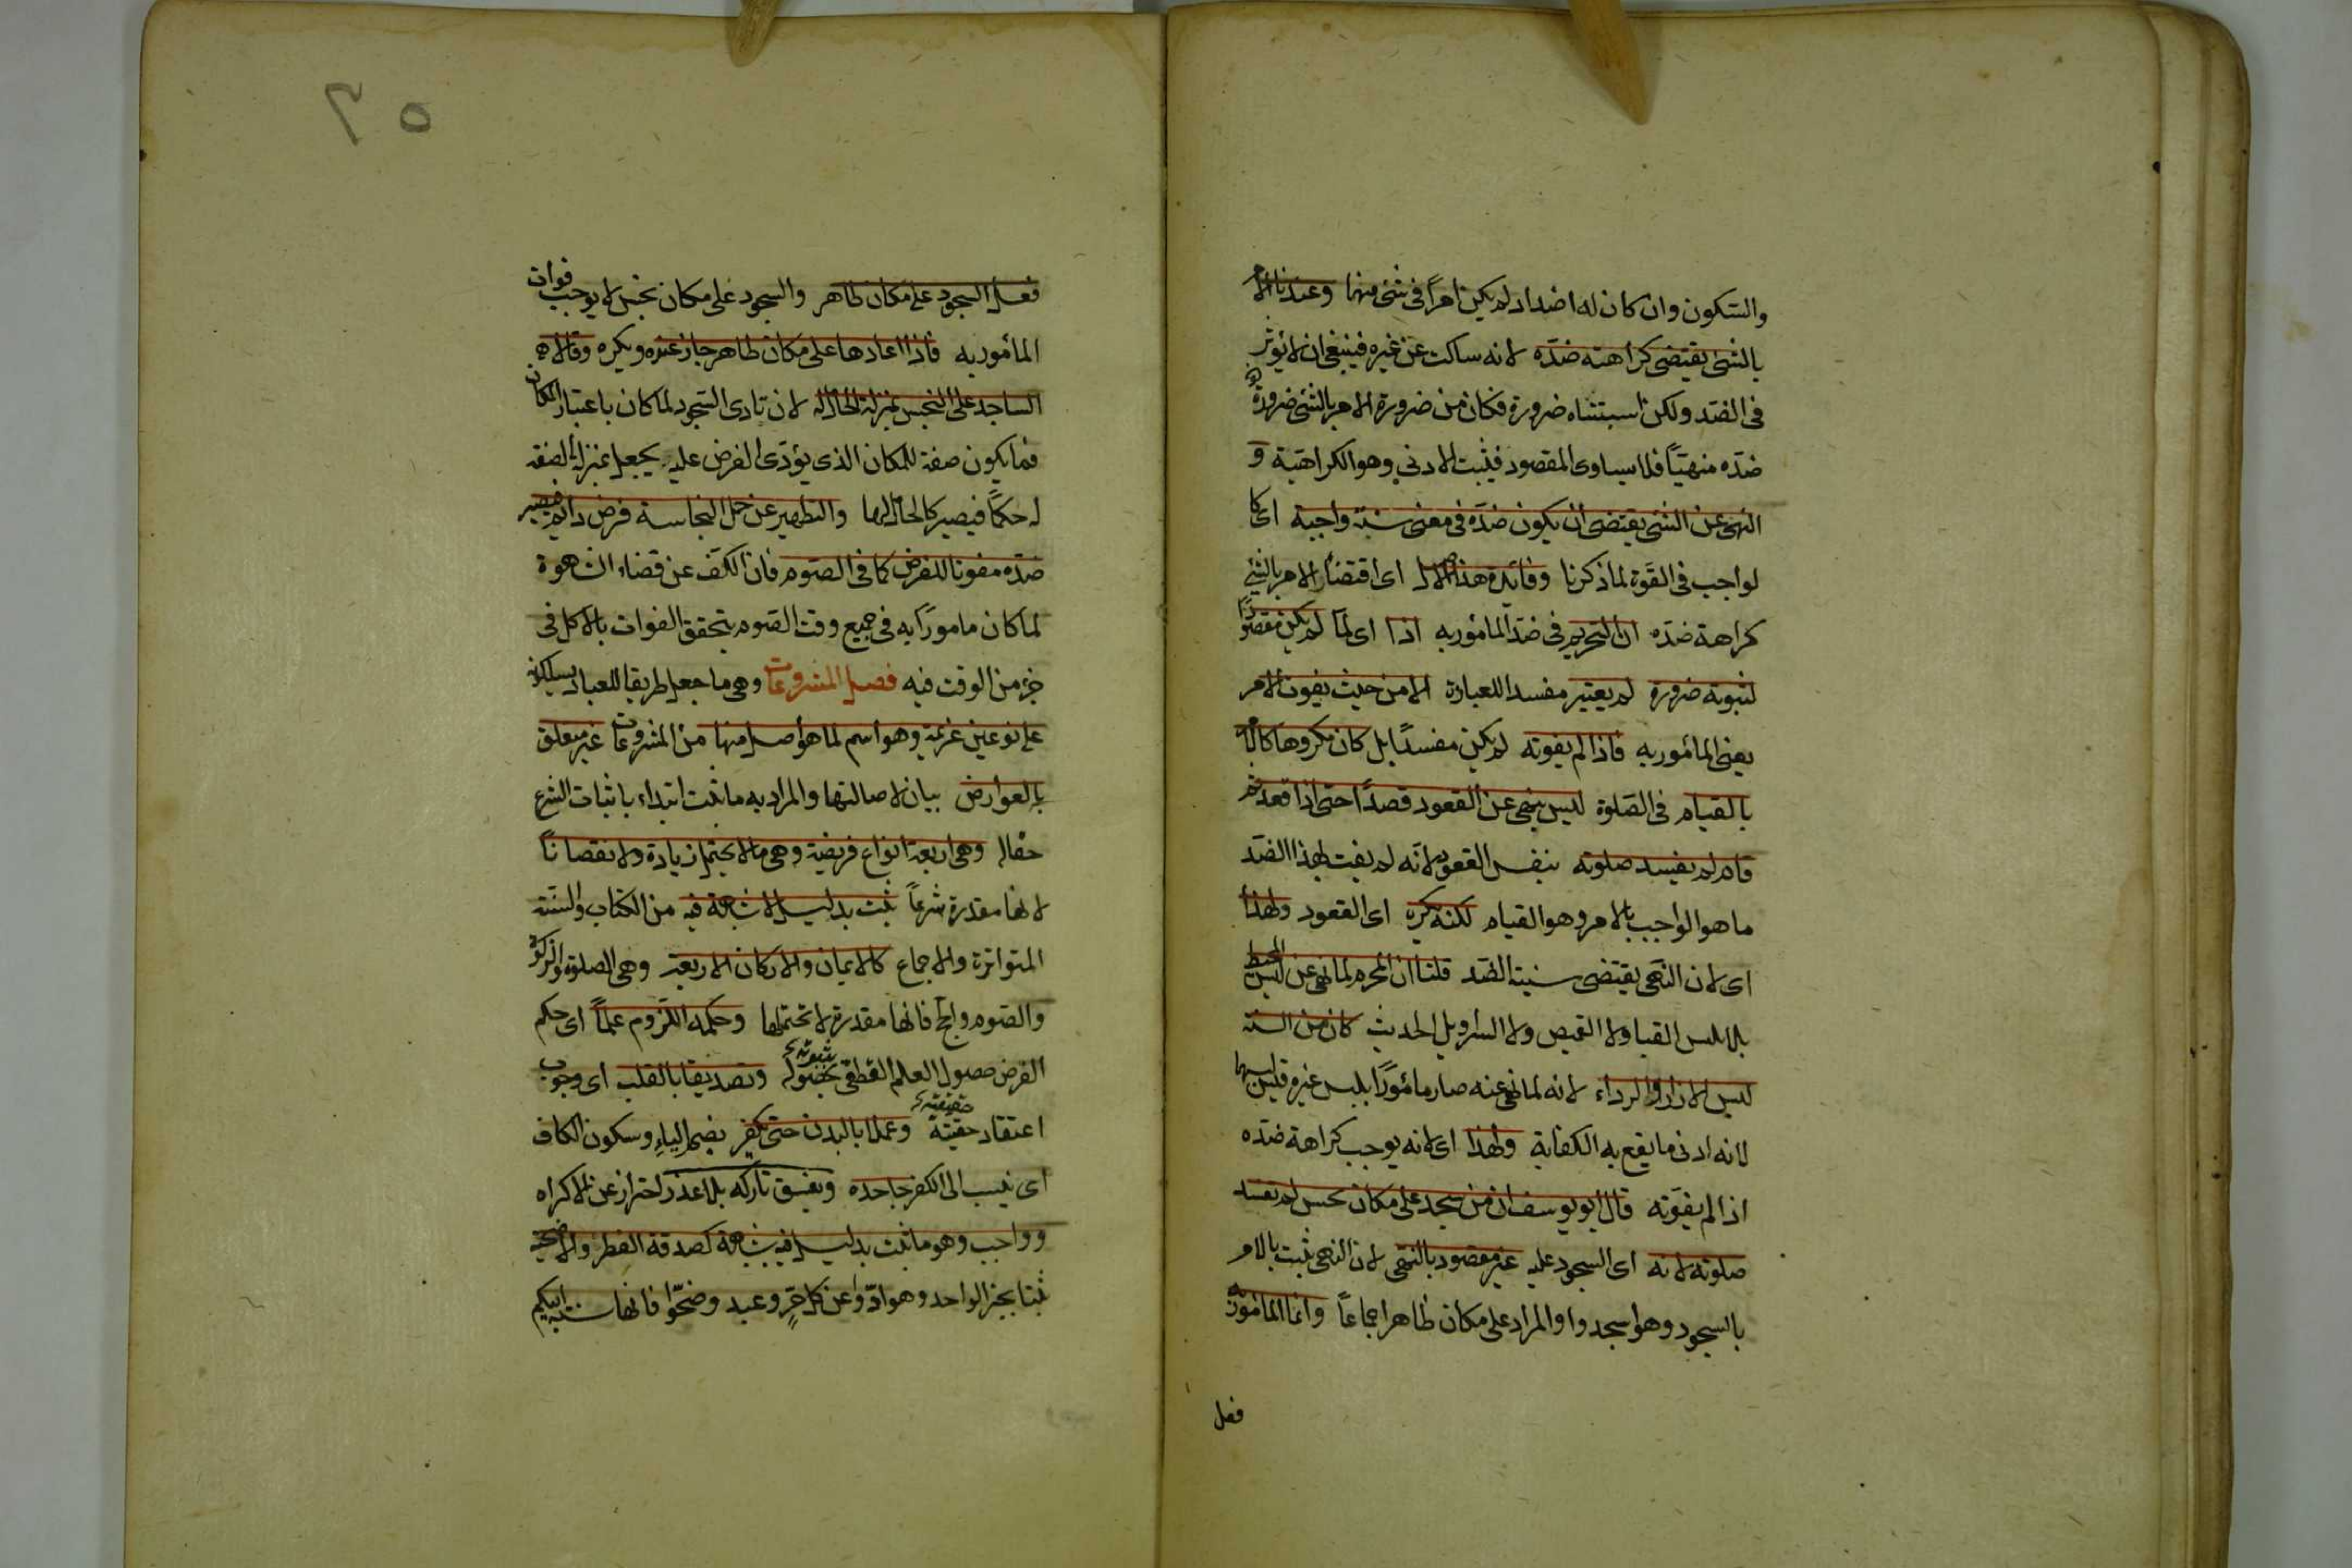 والسكون وان كان له اضداد لم يكن امرًا فى شئ منها وعندنا الامر
بالشئ يقتضى كراهته ضدّه لانه ساكت عن غيره فينبغى ان لا يؤثر
فى الضد ولكن اسبتثناه ضرورة فكان من ضرورة الامر بالشئ ضرورة
ضدّه منهيّاً فلا يساوى المقصود فيثبت الادنى وهو الكراهية و
النهى عن الشئ يقتضى ان يكون ضدّه فى معنى سنة واجبة اى كا
لواجب فى القوة لما ذكرنا وفائدة هذا الاصل اى اقتضاء الامر بالشئ
كراهة ضدّه ان التحريم فى ضد المأمور به اذا اى لمّا لم يكن مقصودًا
لثبوته ضرورة لم يعتبر مفسدا للعبادة الا من حيث يفوت الامر
يعنى المأمور به فاذا لم يفوته لم يكن مفسدًا بل كان مكروها كالامر
بالقيام فى الصلوة ليس بنهى عن القعود قصدًا حتى اذا قعد ثم
قام لم يفسد صلوته بنفس القعود لانه لم يفت بهذا الضدّ
ما هو الواجب بالامر وهو القيام لكنه يكره اى القعود ولهذا
اى لان النهى يقتضى سنية الضد قلنا ان المحرم لما نهى عن لبس المخيط
بلا يلبس القبا ولا القميص ولا السراويل الحديث كان من السنة
لبس الازار والرداء لانه لما نهى عنه صار مأمورًا بلبس غيره فليس لبسهما
لانه ادنى ما يقع به الكفاية ولهذا اى لانه يوجب كراهة ضدّه
اذا لم يفوّته قال ابو يوسف ان من سجد على مكان نجس لم تفسد
صلوته لانه اى السجود عليه غير مقصود بالنهى لان النهى ثبت بالامر
بالسجود وهو اسجدوا والمراد على مكان طاهر اجماعاً وانما المأمور به
فعل
٢٥
فعل السجود على مكان طاهر والسجود على مكان نجس لا يوجب فوات
المأمور به فاذا اعادها على مكان طاهر جاز عنده ويكره وقالا هو
الساجد على النجس بمنزلة الحامل له لان تادى السجود لما كان باعتبار المكان
فما يكون صفة للمكان الذى يؤدى الفرض عليه يجعل بمنزلة الصفة
له حكمًا فيصير كالحامل لها والتطهير عن حمل النجاسة فرض دائم فيصير
ضدّه مفوتا للفرض كما فى الصوم فان الكف عن قضاء الشهوة
لما كان مامورًا به فى جميع وقت الصوم يتحقق الفوات بالاكل فى
جزء من الوقت فيه فصل المشروعات وهى ما جعل طريقا للعباد يسلكونه
على نوعين عزيمة وهو اسم لما هو اصل منها من المشروعات غير متعلق
بالعوارض بيان لاصالتها والمراد به ما ثبت ابتداء باثبات الشرع
حقاله وهى اربعة انواع فريضة وهى ما لا يحتمل زيادة ولا نقصاناً
لانها مقدرة شرعاً ثبت بدليل لا شبهة فيه من الكتاب والسنة
المتواترة والاجماع كالايمان والاركان الاربعة وهى الصلوة والزكوة
والصوم والحج فانها مقدرة لا تحتملها وحكمه اللزوم علماً اى حكم
الفرض حصول العلم القطعى بثبوته وتصديقا بالقلب اى وجوب
اعتقاد حقيته وعملا بالبدن حتى يكفر بضم الياء وسكون الكاف
اى ينسب الى الكفر جاحده ويفسق تاركه بلا عذر احتراز عن الاكراه
وواجب وهو ما ثبت بدليل فيه شبهة كصدقة الفطر والاضحية
ثبتا بخبر الواحد وهو ادّوا عن كل حرٍّ وعبد وضحّوا فانها سنة ابيكم